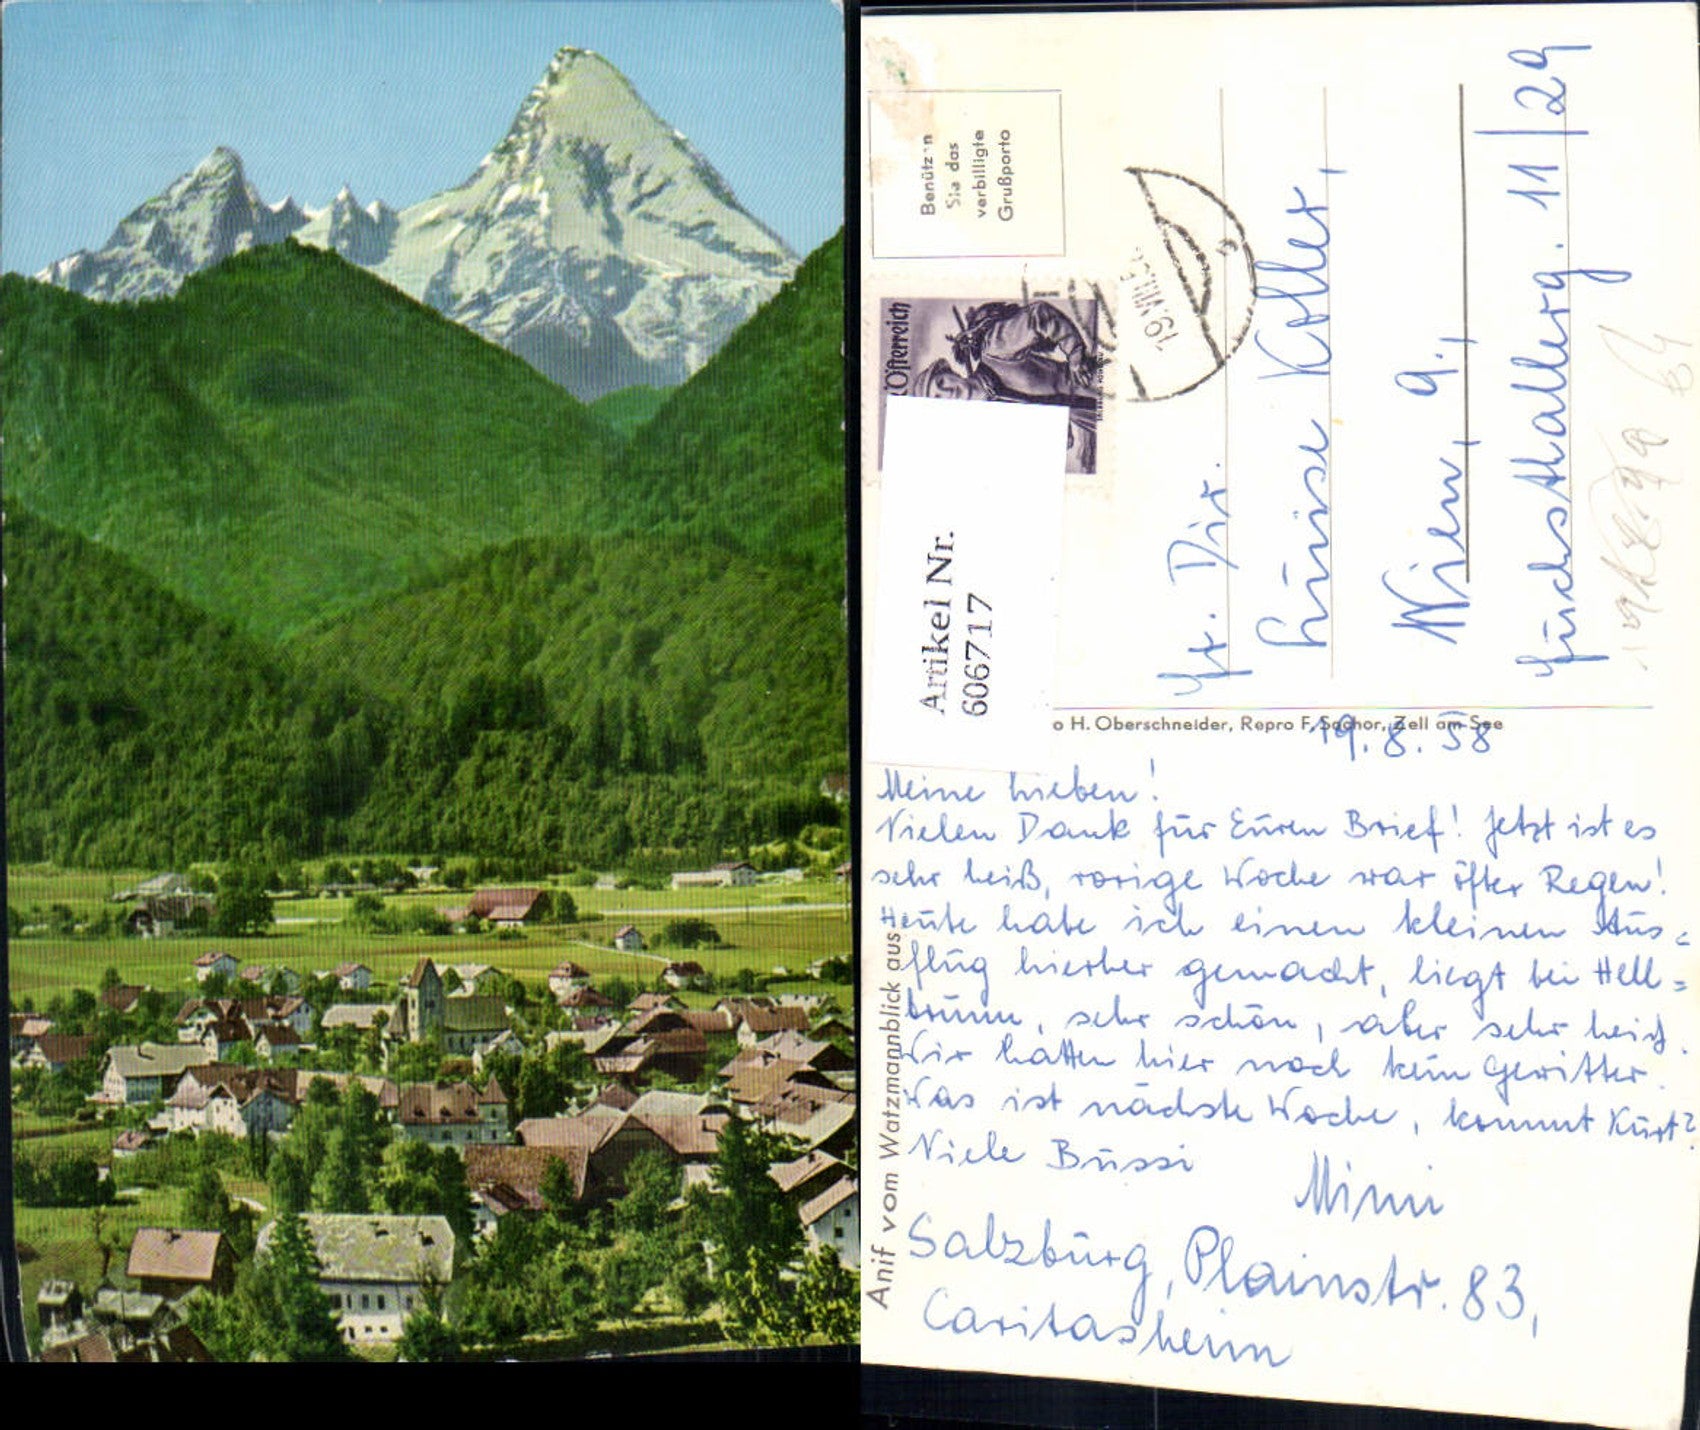 Benützen
Sie das
verbilligte
Grußporto
Österreich
19.VIII.
Artikel Nr.
606717
Fr. Dir.
Luise Koller,
Wien, 9.,
Fuchsthallerg. 11/29
o H. Oberschneider, Repro F. Sochor, Zell am See
19.8.58
Meine Lieben!
Vielen Dank für Euren Brief! Jetzt ist es
sehr heiß, vorige Woche war öfter Regen!
Heute habe ich einen kleinen Aus=
flug hierher gemacht, liegt bei Hell=
brunn, sehr schön, aber sehr heiß.
Wir hatten hier noch kein Gewitter.
Was ist nächste Woche, kommt Kurt?
Viele Bussi
Mimi
Salzburg, Plainstr. 83,
Caritasheim
Anif vom Watzmannblick aus